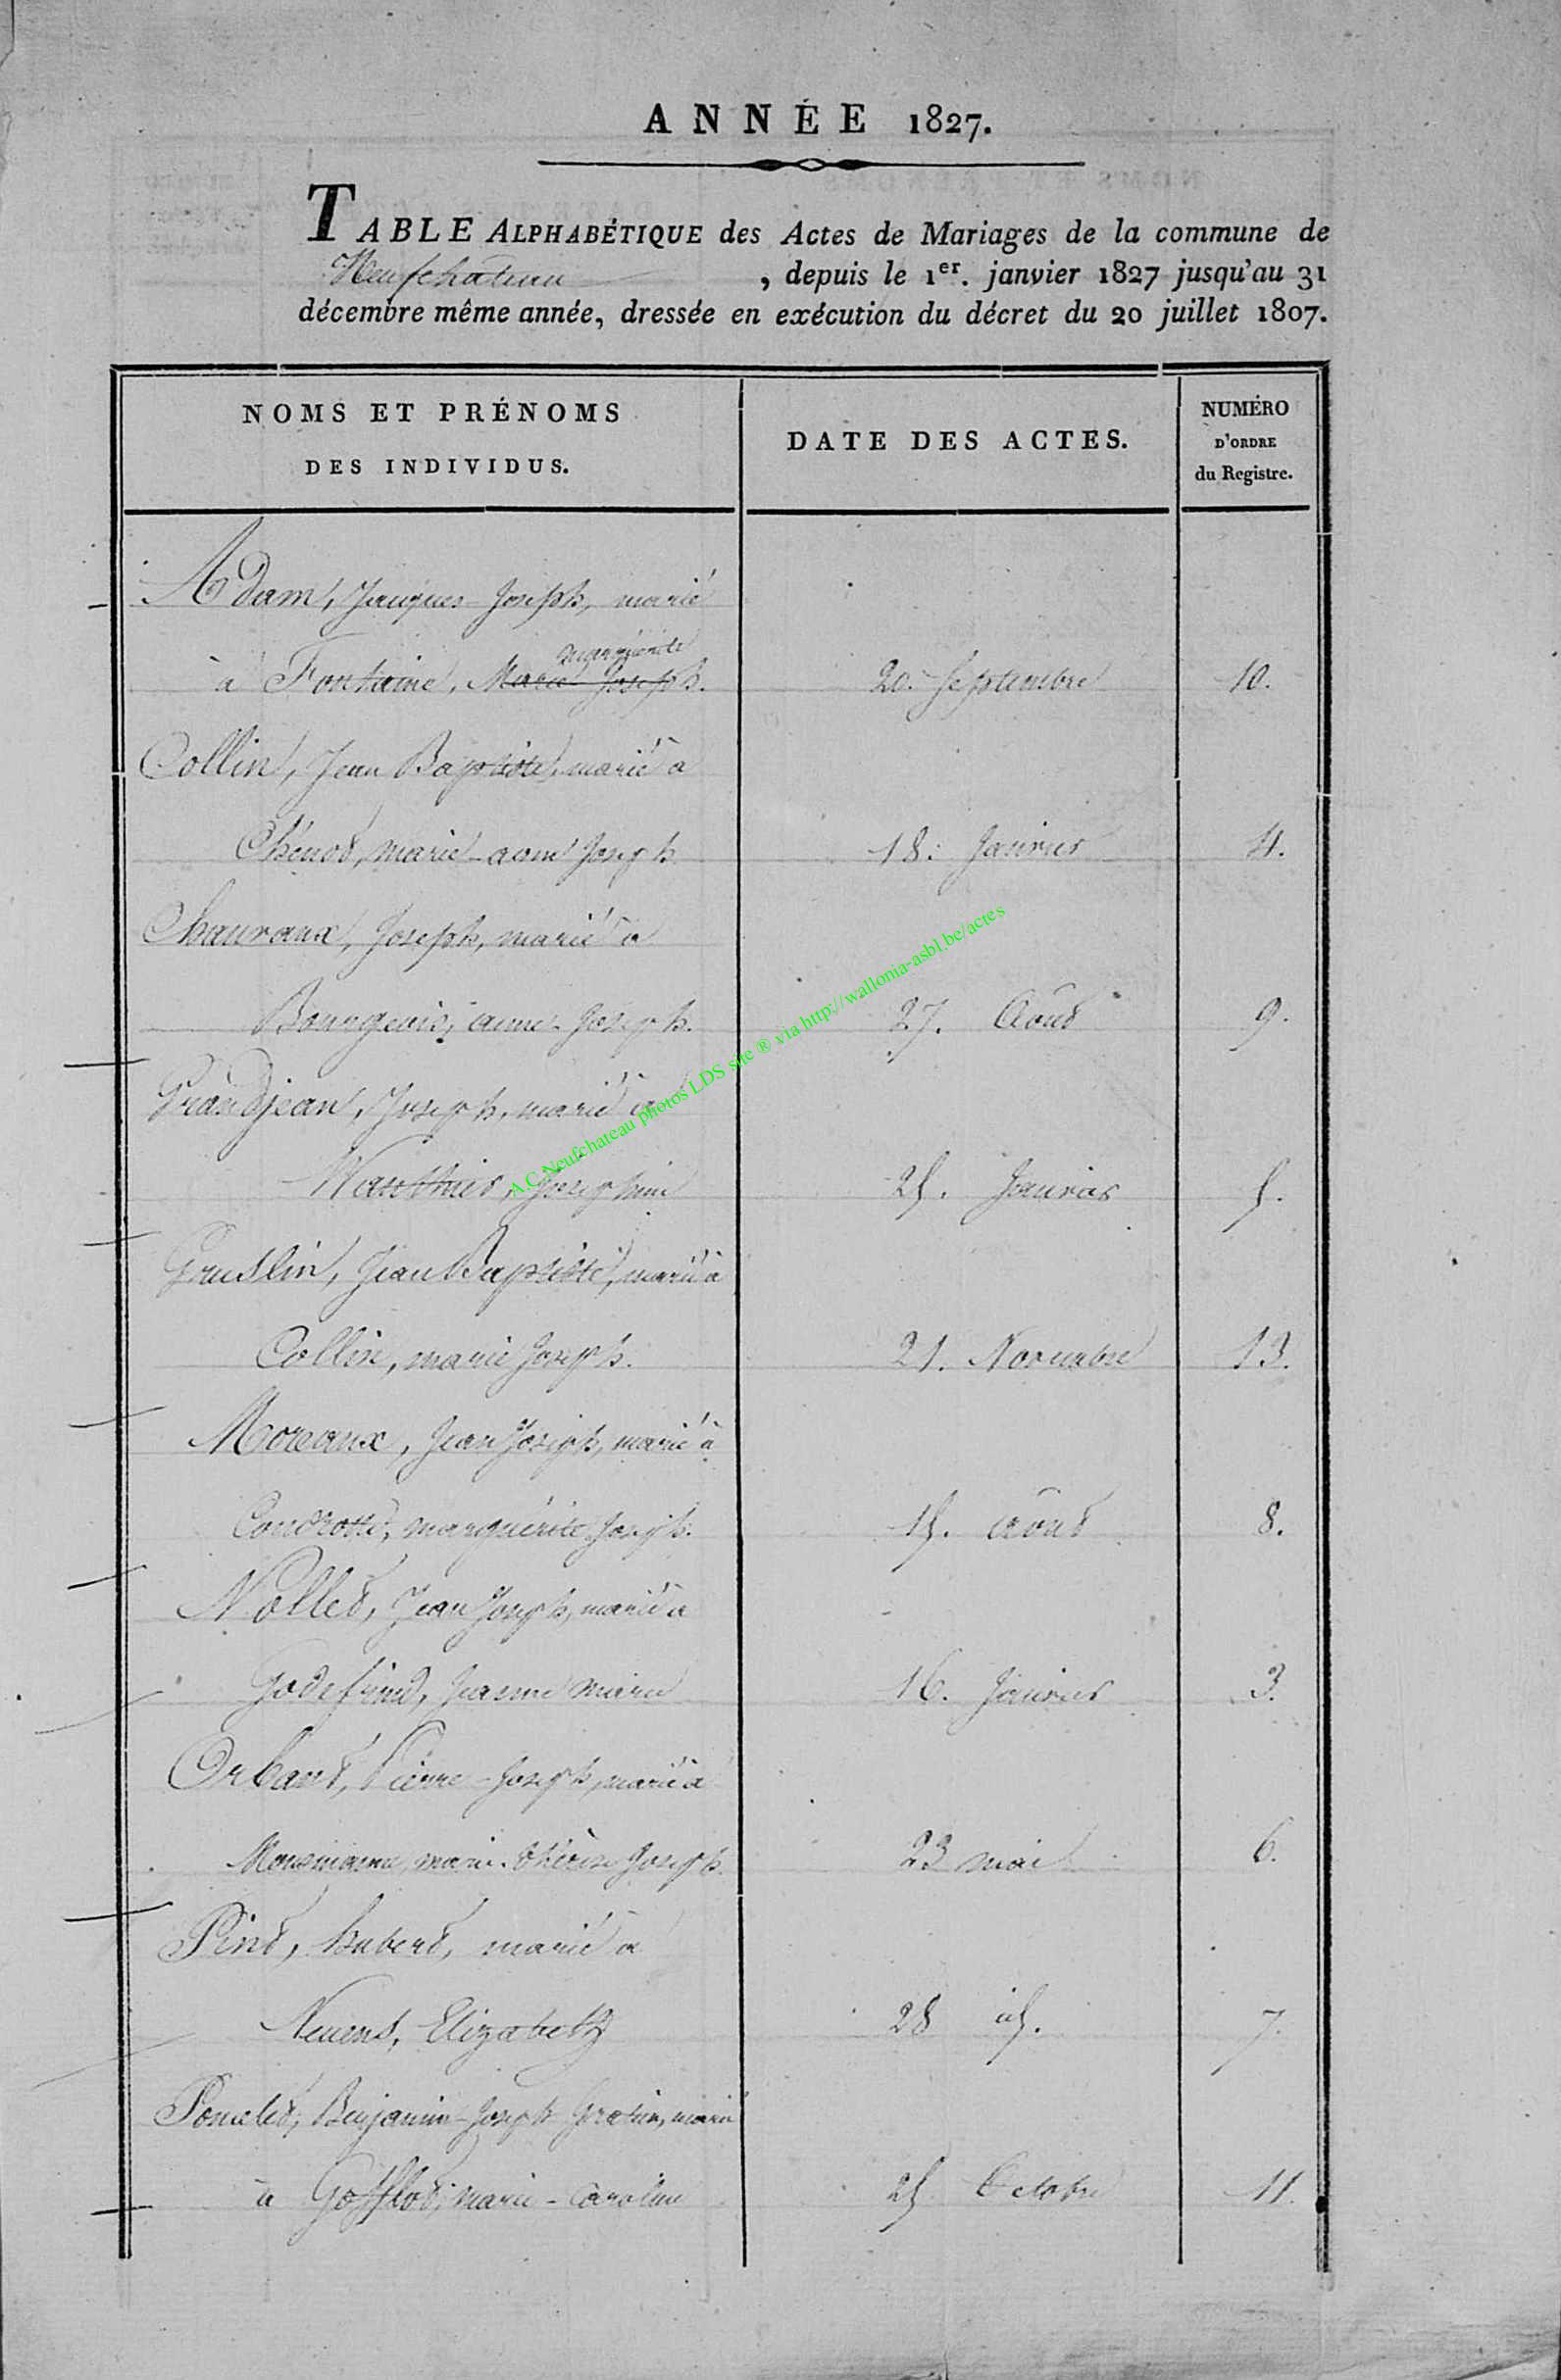 ANNÉE 1827.
TABLE ALPHABÉTIQUE des Actes de Mariages de la commune de
Neufchateau, depuis le 1er. janvier 1827 jusqu'au 31
décembre même année, dressée en exécution du décret du 20 juillet 1807.
NOMS ET PRÉNOMS
DES INDIVIDUS.
DATE DES ACTES.
NUMÉRO
D'ORDRE
du Registre.
Adam, Jacques-Joseph, marié
marguérite
à Fontaine, Marie Joseph. 20. Septembre 10.
Collin, Jean Baptiste, marié à
Chénot, marie-anne Joseph 18. Janvier 4.
Chauvaux, Joseph, marié à
Bourgeois, anne-Joseph. 27. Août 9.
Grandjean, Joseph, marié à
Wauthier, Josephine 25. Janvier 5.
Grusslin, Jean Baptiste, marié à
Collin, marie Joseph. 21. Novembre 13.
Moreaux, Jean Joseph, marié à
Condrotte, marguérite Joseph. 15. août 8.
Nollet, Jean Joseph, marié à
Godefrind, Jeanne Marie 16. Janvier 3.
Orbant, Pierre-Joseph, marié à
marie-thérèse Joseph 23 mai 6.
Pint, hubert, marié à
Neuens, Elizabeth 28 id. 7.
Poncelet, Benjamin-Joseph marié
à Gofflot, marie-Caroline 25 Octobre 11.
A.C.Neufchateau photos LDS site ® via http://wallonia-asbl.be/actes